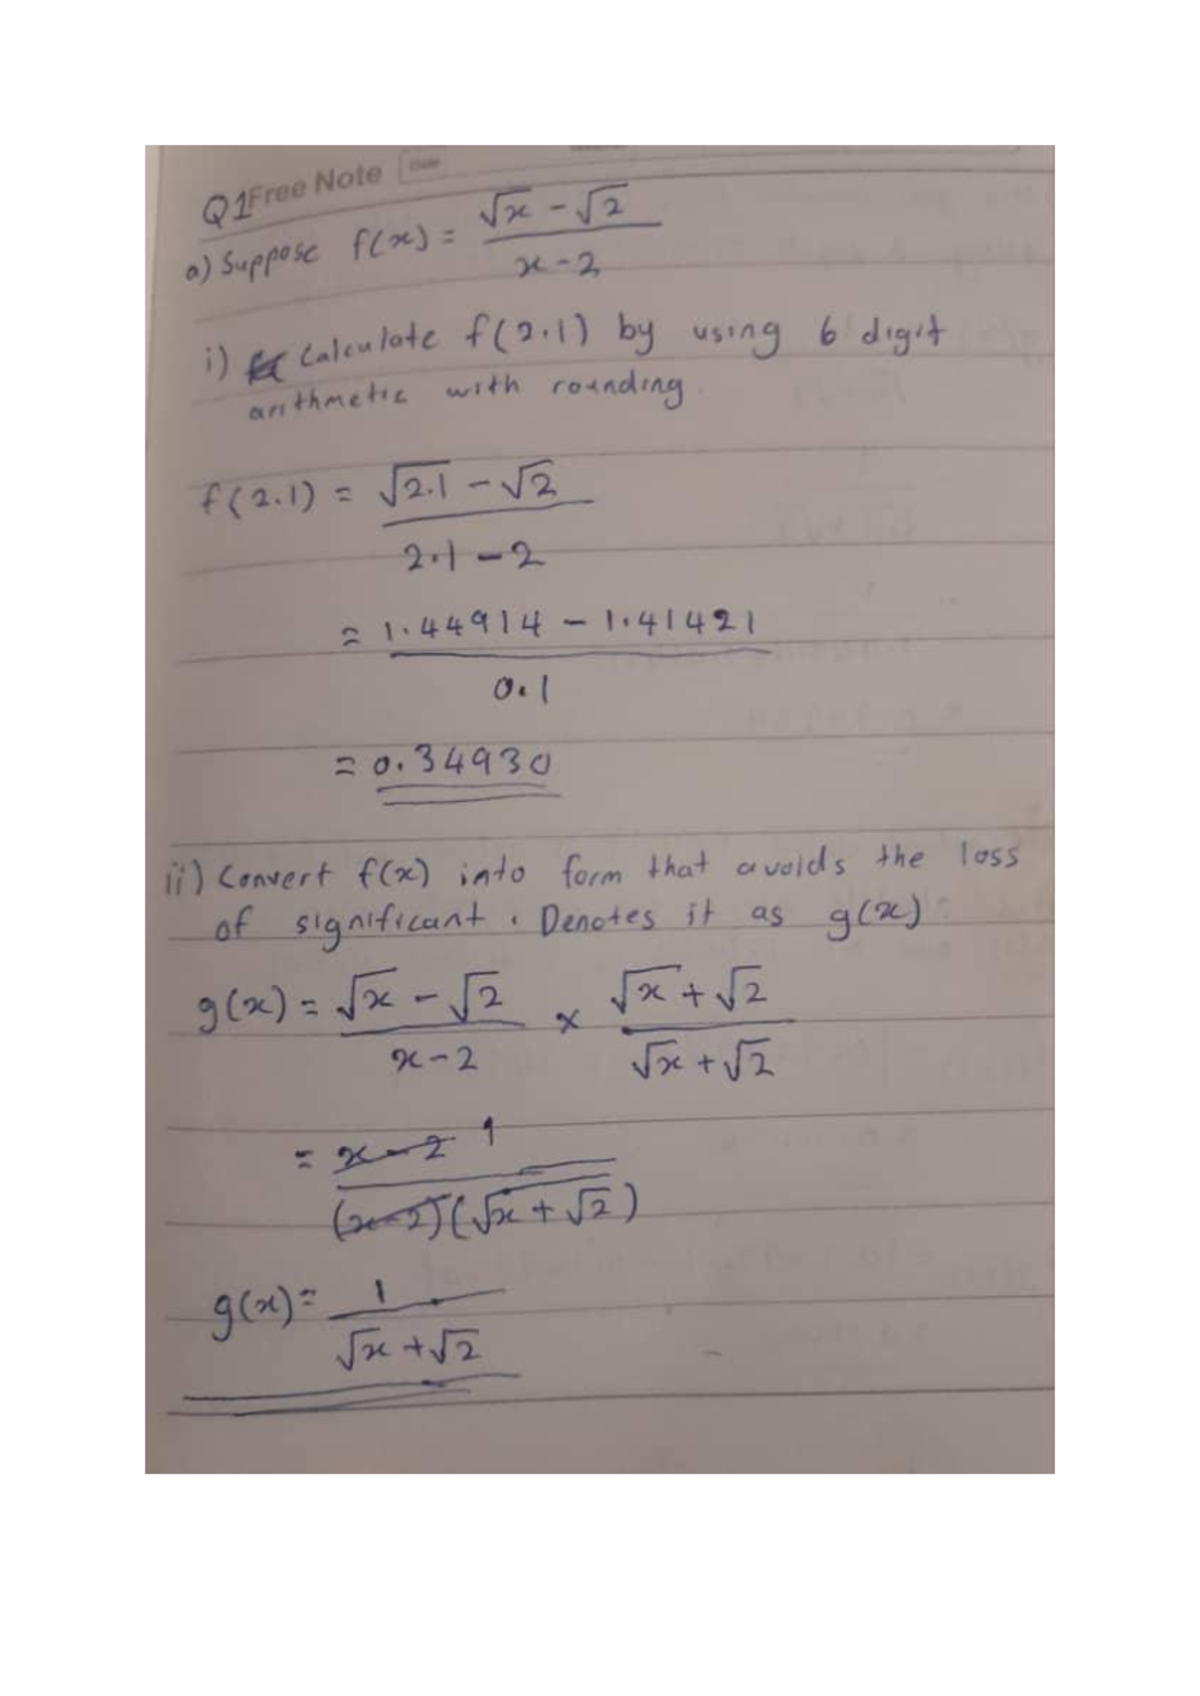 Q1 Free Note Date
a) Suppose f(x) = √x - √2 / x - 2
i) Calculate f(2.1) by using 6 digit
arithmetic with rounding.
f(2.1) = √2.1 - √2 / 2.1 - 2
= 1.44914 - 1.41421 / 0.1
= 0.34930
ii) Convert f(x) into form that avoids the loss
of significant. Denotes it as g(x).
g(x) = √x - √2 / x - 2 × √x + √2 / √x + √2
= x - 2 1 / (x-2)(√x + √2)
g(x) = 1 / √x + √2